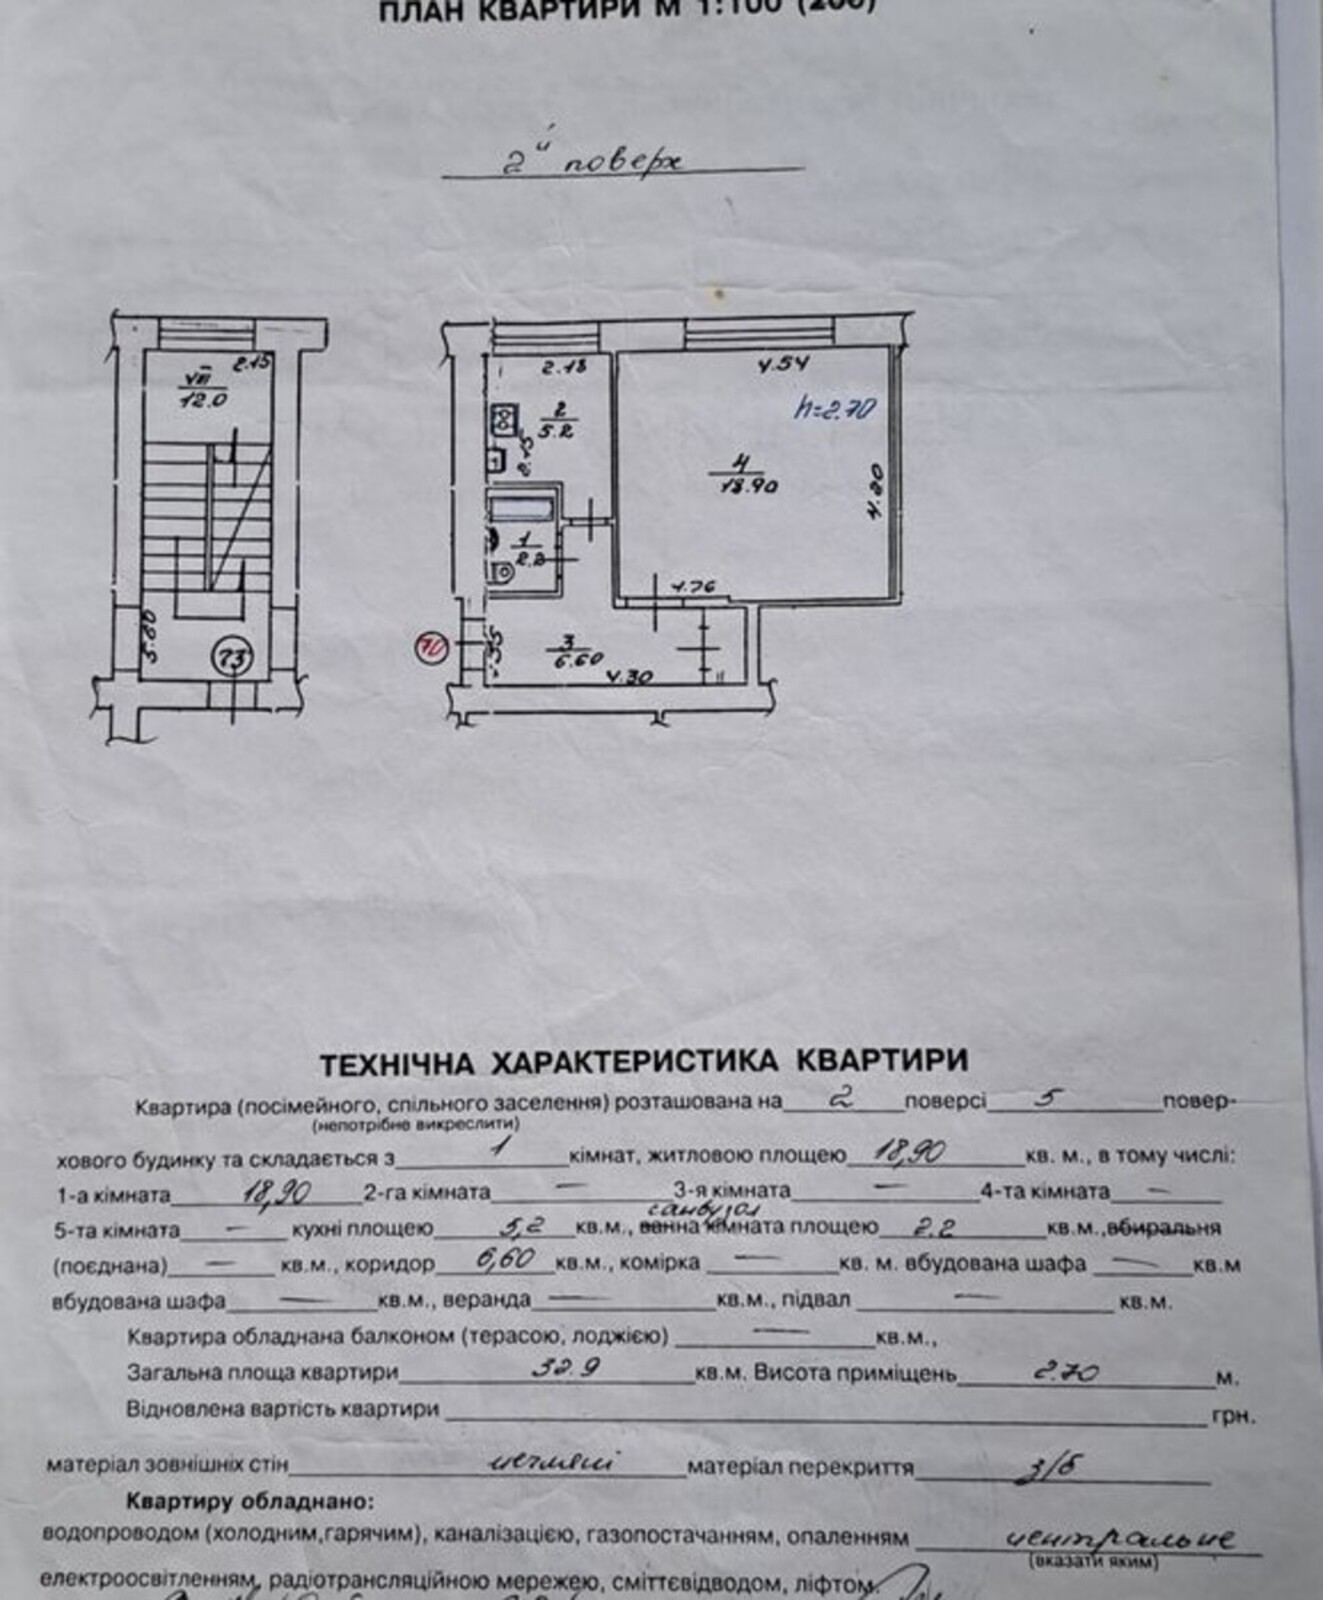 ПЛАН КВАРТИРИ М 1:100 (200)
2й поверх
2.15
VIII
12.0
5.80
73
2.18
4.54
h=2.70
2
5.2
4
18.90
4.20
1
2.2
4.76
70
3
6.60
4.30
ТЕХНІЧНА ХАРАКТЕРИСТИКА КВАРТИРИ
Квартира (посімейного, спільного заселення) розташована на 2 поверсі 5 повер-
(непотрібне викреслити)
хового будинку та складається з 1 кімнат, житловою площею 18,90 кв. м., в тому числі:
1-а кімната 18,90 2-га кімната — 3-я кімната — 4-та кімната —
санвузол
5-та кімната — кухні площею 5,2 кв.м., ванна кімната площею 2.2 кв.м.,вбиральня
(поєднана) — кв.м., коридор 6,60 кв.м., комірка — кв. м. вбудована шафа — кв.м
вбудована шафа — кв.м., веранда — кв.м., підвал — кв.м.
Квартира обладнана балконом (терасою, лоджією) — кв.м.,
Загальна площа квартири 32.9 кв.м. Висота приміщень 2.70 м.
Відновлена вартість квартири грн.
матеріал зовнішніх стін цегляні матеріал перекриття з/б
Квартиру обладнано:
водопроводом (холодним,гарячим), каналізацією, газопостачанням, опаленням центральне
(вказати яким)
електроосвітленням, радіотрансляційною мережею, сміттєвідводом, ліфтом